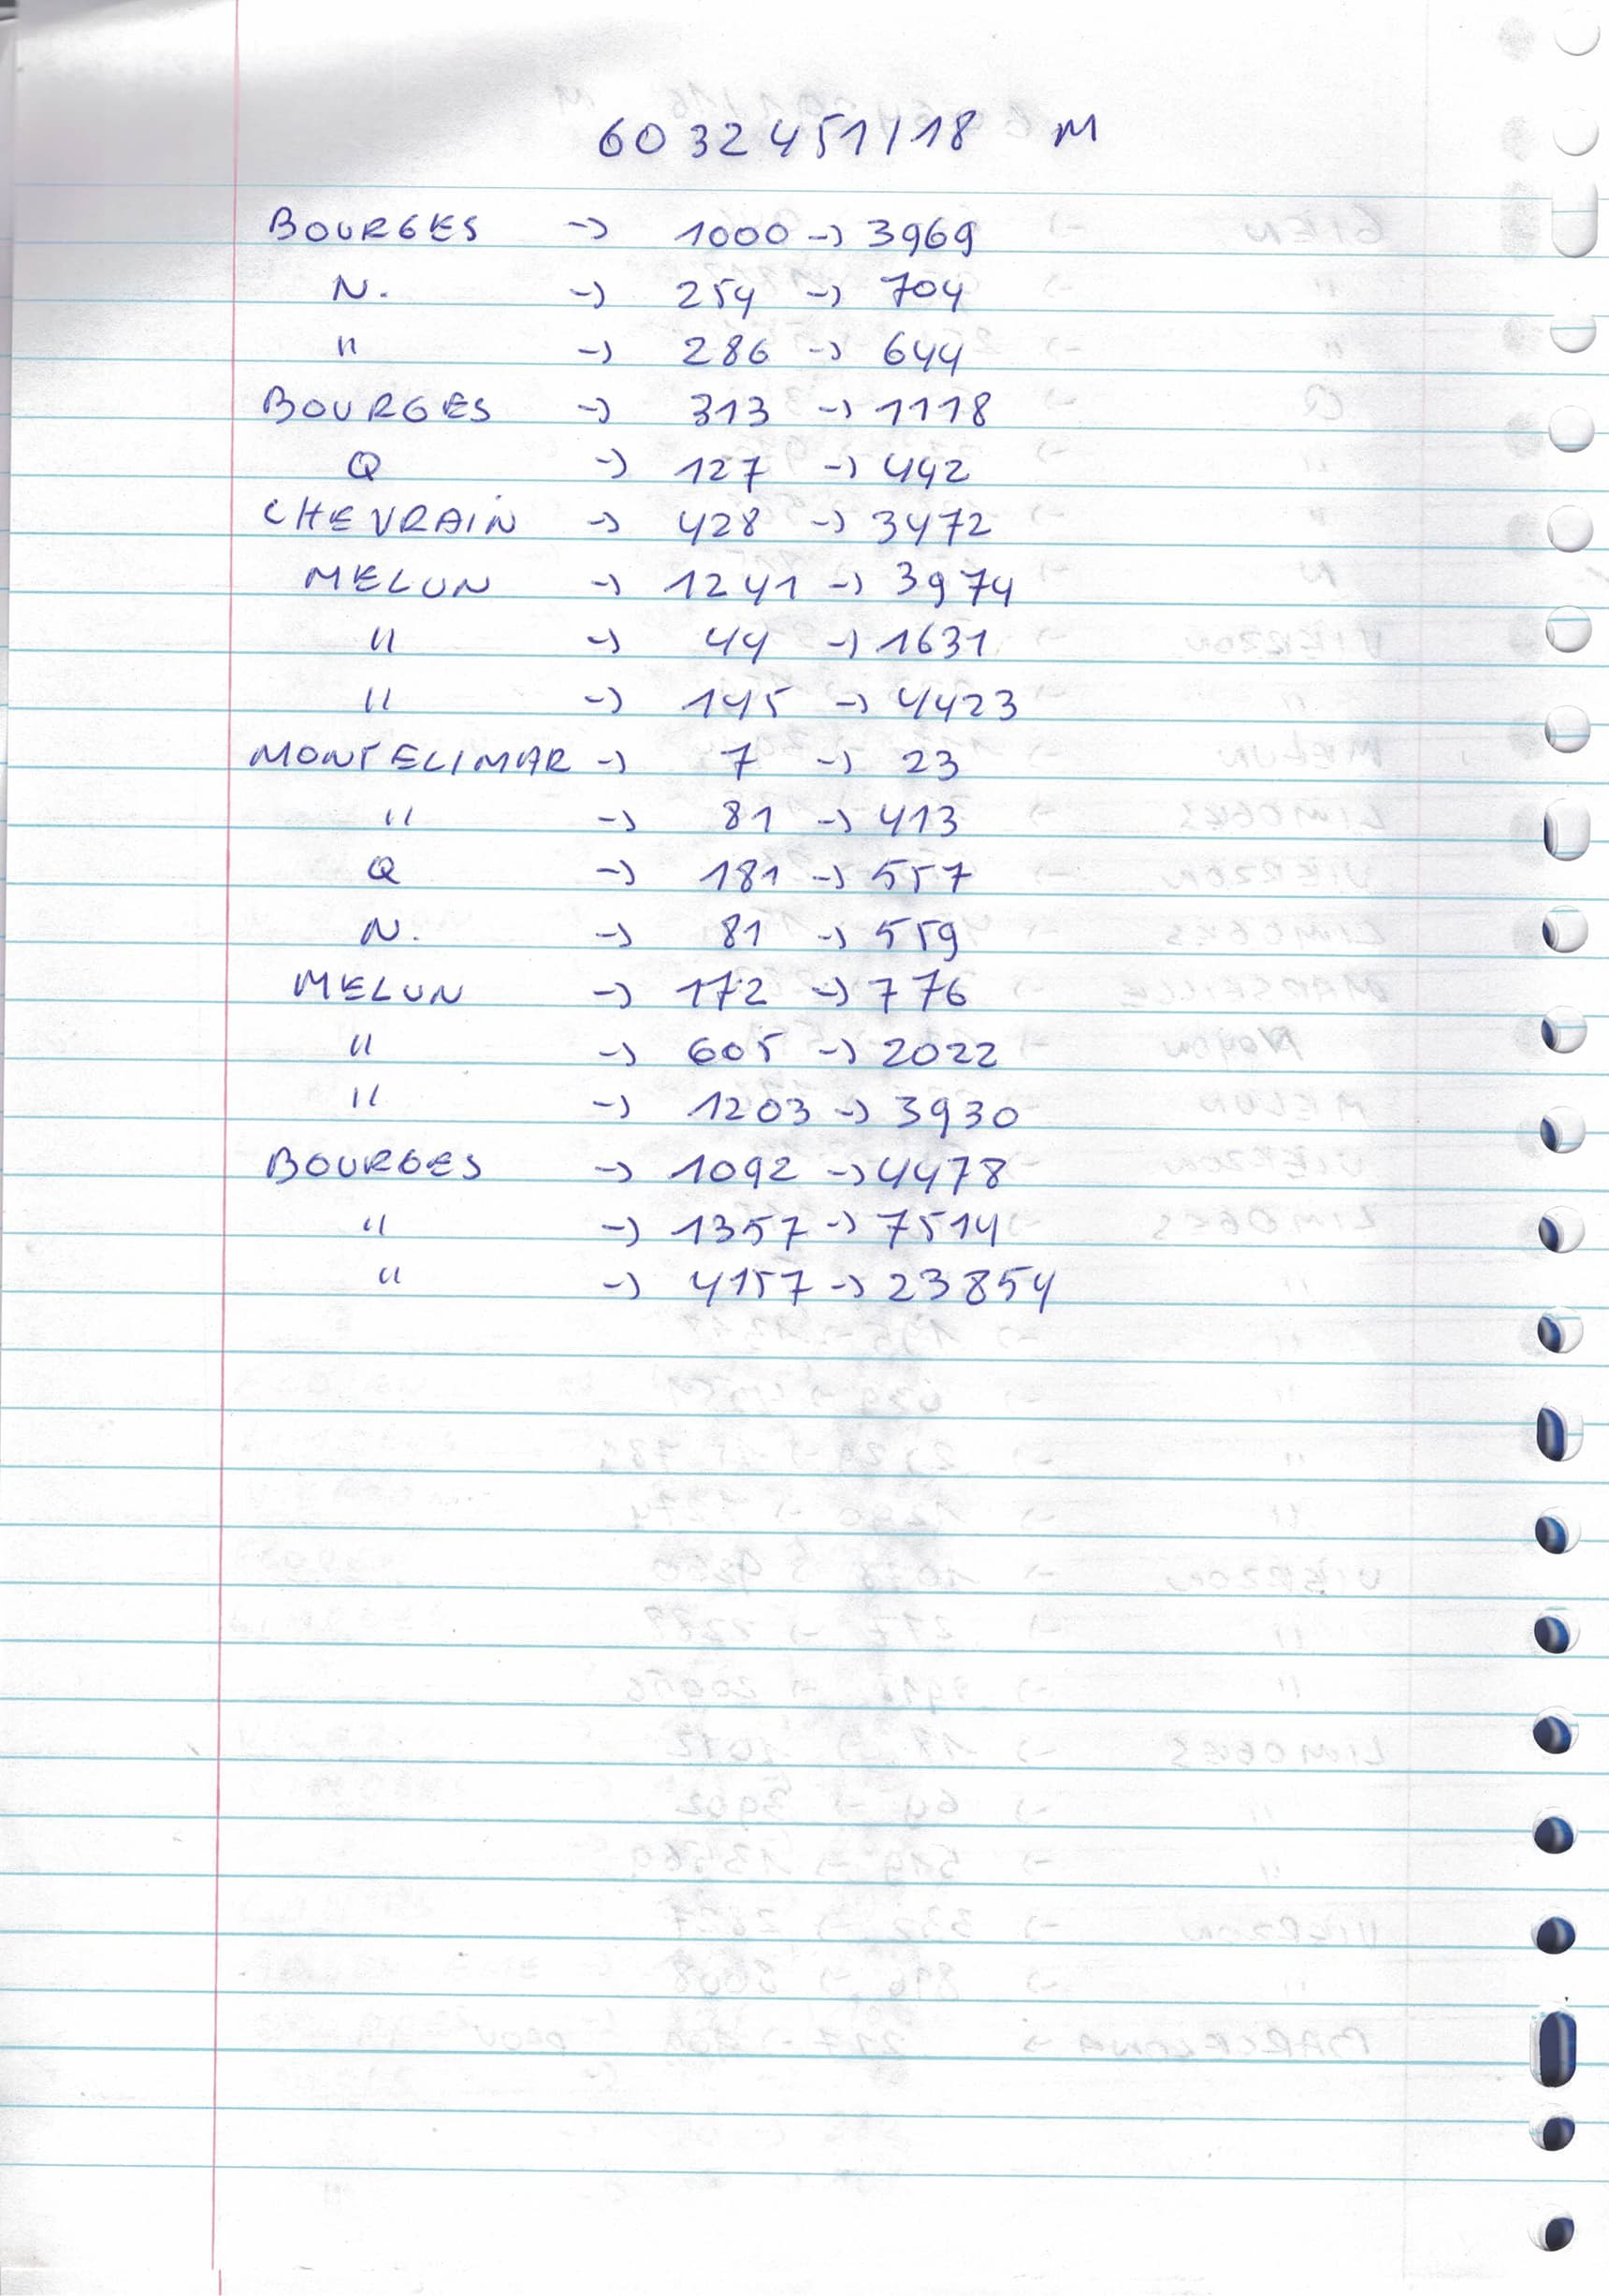 6032451/18 M
BOURGES -> 1000 -> 3969
N. -> 254 -> 704
" -> 286 -> 644
BOURGES -> 313 -> 1118
Q -> 127 -> 442
CHEVRAIN -> 428 -> 3472
MELUN -> 1241 -> 3974
" -> 44 -> 1631
" -> 145 -> 4423
MONTELIMAR -> 7 -> 23
" -> 81 -> 413
Q -> 181 -> 557
N. -> 81 -> 559
MELUN -> 172 -> 776
" -> 605 -> 2022
" -> 1203 -> 3930
BOURGES -> 1092 -> 4478
" -> 1357 -> 7514
" -> 4157 -> 23854